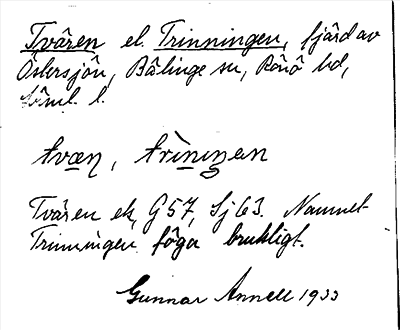 Tvären el. Trinningen, fjärd av
Östersjön, Bälinge sn, Rönö hd,
Söml. l.
tvæn, trìniŋan
Tvären ek, G57, Sj 63. Namnet
Trinningen föga brukligt.
Gunnar Annell 1933